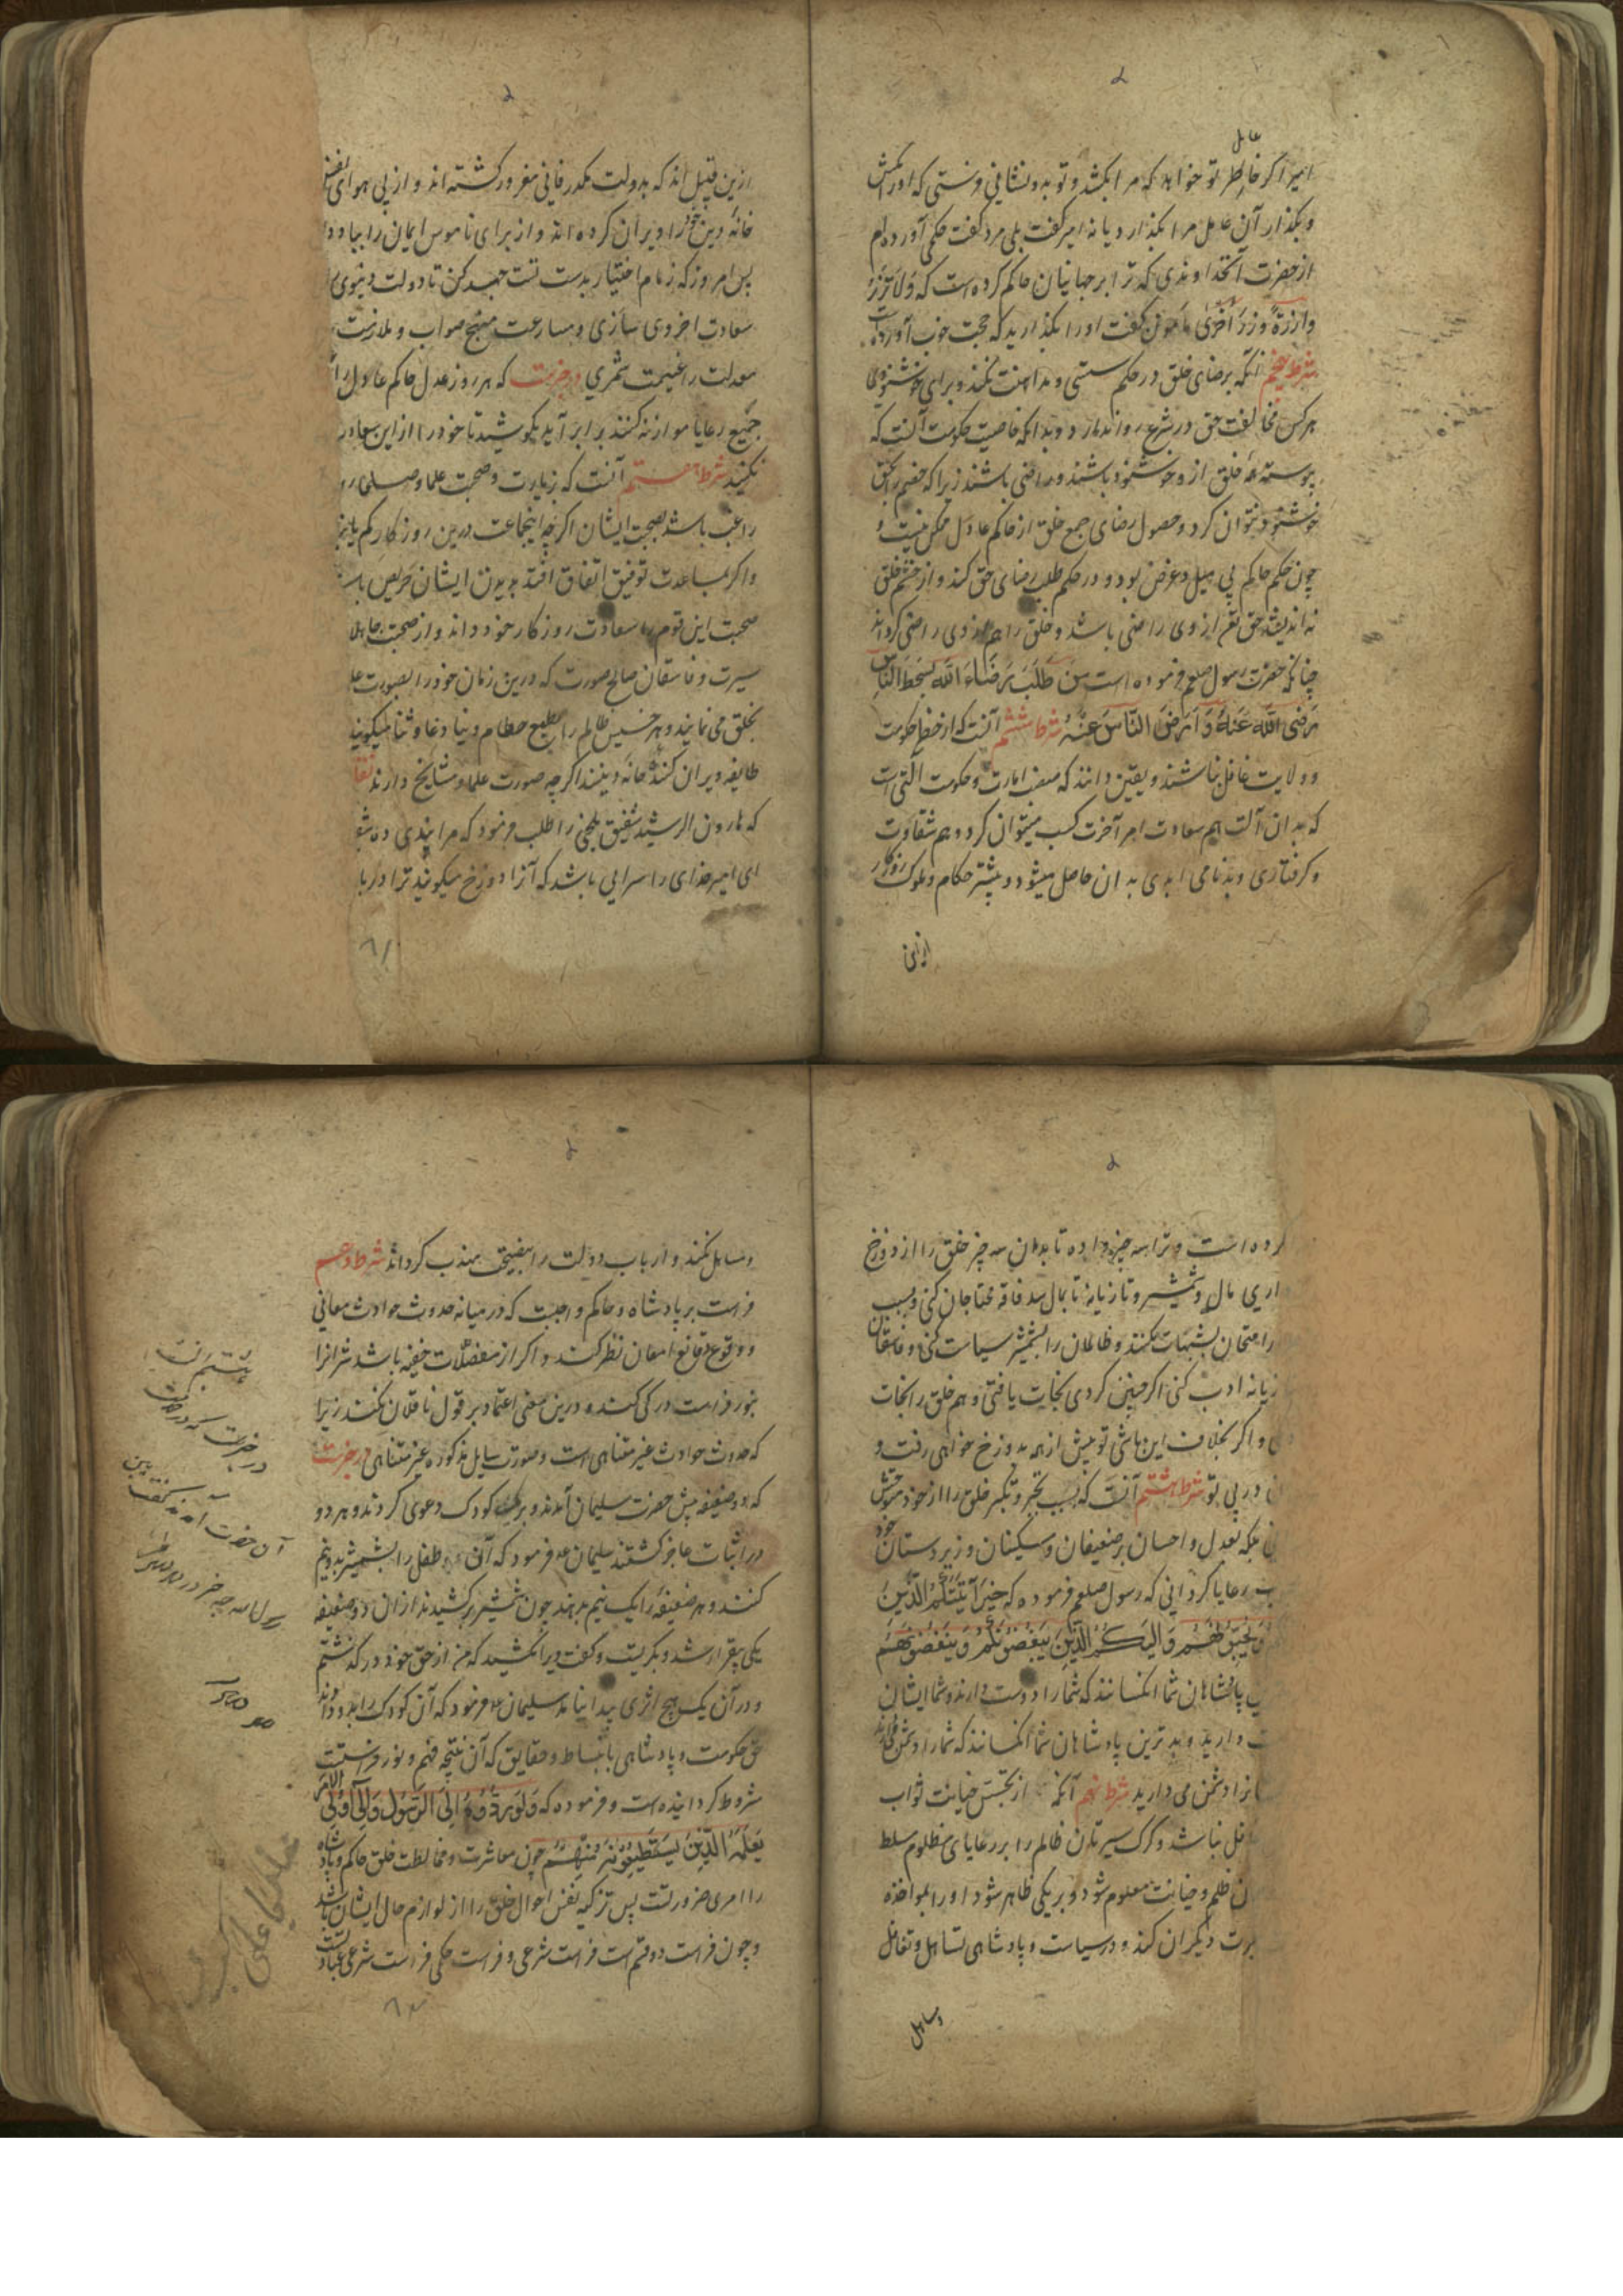 امیر اگر عامل تو خواهد که مرا بکشد و تو بدو نشانی فرستی که او را مکش
و بگذار آن عامل مرا بگذارد یا نه امیر گفت بلی مرد گفت حکمی آورده‌ام
از حضرت آنخداوندی که ترا بر جهانیان حاکم کرده است که وَلَا تَزِرُ
وَازِرَةٌ وِزْرَ أُخْرَىٰ مأمون گفت او را بگذارید که حجت خوب آورده است
شرط پنجم آنکه برضای خلق در حکم سستی و مداهنت نکند و برای خوشنودی
هر کس مخالفت حق در شرع روا ندارد و بداند که خاصیت حکومت آنست که
پیوسته خلق ازو خوشنود باشند و راضی باشند زیرا که خصم را بحق
خوشنود نتوان کرد و حصول رضای جمع خلق از حاکم عادل ممکن نیست و
چون حکم حاکم بی میل و غرض بود و در حکم طلب رضای حق کند و از خشم خلق
نه اندیشد حق تعم از وی راضی باشد و خلق را هم از وی راضی گرداند
چنانکه حضرت رسول صلعم فرموده است من طَلَبَ رَضَاءَ اللّٰه بِسَخَطِ النَّاسِ
رَضِیَ اللّٰه عَنْهُ وَ اَرْضَی النَّاسَ عَنْهُ شرط ششم آنست که از خطر حکومت
و ولایت غافل نباشند و یقین دانند که منصب امارت و حکومت التی است
که بدان آلت هم سعادت امر آخرت کسب میتوان کرد و هم شقاوت
و گرفتاری و بدنامی ابدی بدان حاصل میشود و بیشتر حکام و ملوک روزگار
ازین
ازین قبیل اند که بدولت مکدر فانی مغرور گشته اند و از پی هوای نفس
خانه دین خود را ویران کرده اند و از برای ناموس ایمان را بباد داد
پس امروز که زمام اختیار بدست تست جهد کن تا دولت دنیوی
سعادت اخروی سازی و مسارعت منهج صواب و ملازمت
معدلت را غنیمت شمری در خبرست که هر روز عدل حاکم عادل را
جمیع رعایا موازنه کنند برابر آید بکوشید تا خود را از این سعادت
نکنید شرط هفتم آنست که زیارت و صحبت علما و صلحا
راغب باشد بصحبت ایشان اگرچه اینجماعت درین روزگار کم یابند
و اگر بمساعدت توفیق اتفاق افتد بدیدن ایشان حریص باشد
صحبت این قوم را سعادت روزگار خود داند و از صحبت جاهلان
سیرت و فاسقان صالح صورت که درین زمان خود را بصورت علما
بخلق می نمایند و هر خسیس ظالم را بطمع حطام دنیا دعا و ثنا میگویند
طایفه ویران کننده خانه دینند اگرچه صورت علما و مشایخ دارند نقل
که هارون الرشید شقیق بلخی را طلب فرمود که مرا پندی ده
ای امیر خدای را سرایی باشد که آنرا دوزخ میگویند ترا دربان
۶۱
کرده است و ترا سه چیز داده تا بدان سه چیز خلق را از دوزخ
داری مال و شمشیر و تازیانه تا بمال سد فاقه محتاجان کنی و بسبب
را امتحان بشبهات نکنند و ظالمان را بشمشیر سیاست کنی و فاسقان
زیانه ادب کنی اگر چنین کردی نجات یافتی و هم خلق را نجات
و اگر بخلاف این باشی تو پیش از همه بدوزخ خواهی رفت و
در پی تو شرط هشتم آنست که بسبب تجبر و تکبر خلق را از خود متوحش
بلکه بعدل و احسان بر ضعیفان و مسکینان و زیردستان خود
رعایا گردانی که رسول صلعم فرموده که خیر آئمتکم الذین
تحبونهم وَ الیکم الَّذِینَ یَبْغَضُونَکُمْ وَ یَبْغَضُونَهُم
پادشاهان شما آنکسانند که شما را دوست دارند و شما ایشان
دارید و بدترین پادشاهان شما آنکسانند که شما را دشمن دارند
دشمن می دارید شرط نهم آنکه از تجسس خیانت نواب
غافل نباشد و گرگ سیرتان ظالم را بر رعایای مظلوم مسلط
ظلم و خیانت معلوم شود و بریکی ظاهر شود او را بمواخذه
عبرت دیگران کند و در سیاست و پادشاهی تساهل و تغافل
وساهل
وساهل نکند و ارباب دولت را بنصیحت مهذب گرداند شرط دهم
فراست بر پادشاه و حاکم واجبست که در میانه حدوث حوادث معانی
و وقوع وقایع امعان نظر کند و اگر از معضلات خفیه باشد سرانرا
بنور فراست درک کند و درین معنی اعتماد بر قول ناقلان نکند زیرا
که حدوث حوادث غیر متناهی است و صورت مسایل مذکوره غیر متناهی در خبرست
که دو ضعیفه پیش حضرت سلیمان آمدند و بر یک کودک دعوی کردند و هر دو
در اثبات عاجز گشتند سلیمان ع فرمود که آن طفل را بشمشیر بدونیم
کنند و هر ضعیفه را یک نیم بدهند چون شمشیر برکشیدند از ان دو ضعیفه
یکی بیقرار شد و بگریست و گفت ویرا مکشید که من از حق خود درگذشتم
و در آن یک هیچ اثری پیدا نیامد سلیمان ع فرمود که آن کودک را بدو دادند
حق حکومت و پادشاهی باستنباط و حقایق که آن نتیجه فهم و نور فراستست
مشروط گردانیده است و فرموده که وَلَوْ رَدُّوهُ اِلَی الرَّسُولِ وَاِلَی اُولِی الامر
لَعَلِمَهُ الَّذِینَ یَسْتَنْبِطُونَهُ مِنْهُمْ چون معاشرت و مخالطت خلق حاکم و پادشاه
را امری ضروریست پس تزکیه نفس احوال خلق را از لوازم حال ایشان باشد
و چون فراست دو قسم است فراست شرعی و فراست حکمی فراست شرعی عبارتست
در خبرست که در
آن حضرت